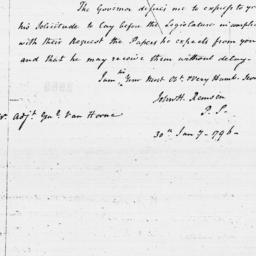 The Governor desires me to express to you
his Solicitude to lay before the Legislature in complia
with their Request the Papers he expects from you
and that he may receive them without delay.
I am Sir Your Most Obt. & Very Humb. Serv
John H. Remsen
P. S.
Adjt. Genl. Van Horne
30th Jany. 1796